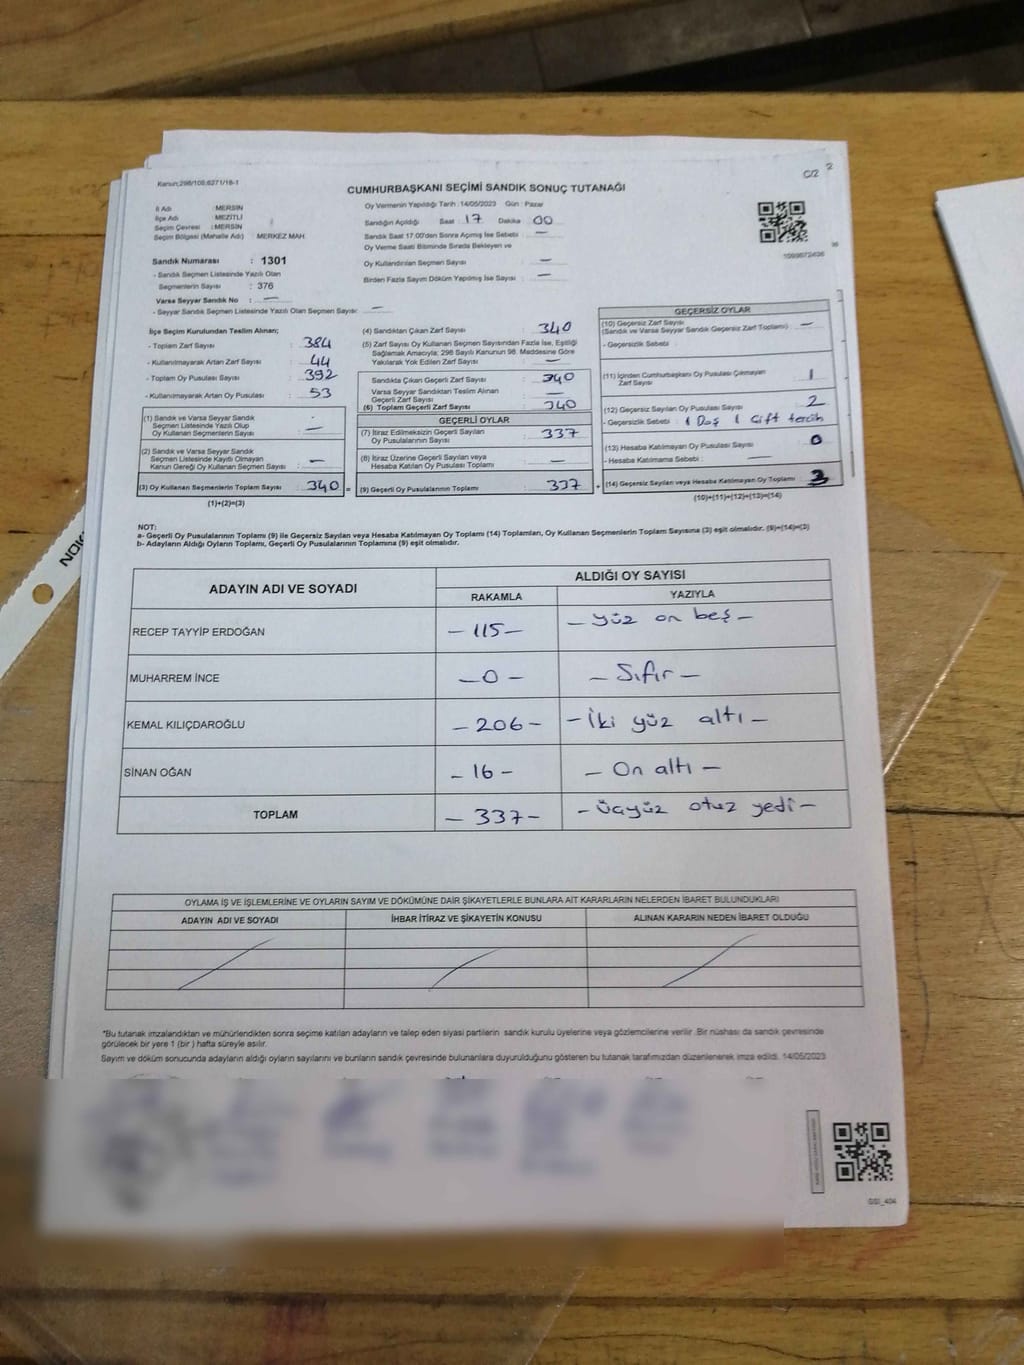 Kanun;298/105,6271/18-1
C/2 2
CUMHURBAŞKANI SEÇİMİ SANDIK SONUÇ TUTANAĞI
İl Adı : MERSİN
İlçe Adı : MEZİTLİ
Seçim Çevresi : MERSİN
Seçim Bölgesi (Mahalle Adı) : MERKEZ MAH
Sandık Numarası : 1301
- Sandık Seçmen Listesinde Yazılı Olan
Seçmenlerin Sayısı : 376
Varsa Seyyar Sandık No : —
- Seyyar Sandık Seçmen Listesinde Yazılı Olan Seçmen Sayısı: —
Oy Vermenin Yapıldığı Tarih : 14/05/2023 Gün : Pazar
Sandığın Açıldığı Saat : 17 Dakika : 00
Sandık Saat 17.00'den Sonra Açılmış İse Sebebi : —
Oy Verme Saati Bitiminde Sırada Bekleyen ve
Oy Kullandırılan Seçmen Sayısı : —
Birden Fazla Sayım Döküm Yapılmış İse Sayısı : —
İlçe Seçim Kurulundan Teslim Alınan;
- Toplam Zarf Sayısı : 384
- Kullanılmayarak Artan Zarf Sayısı : 44
- Toplam Oy Pusulası Sayısı : 392
- Kullanılmayarak Artan Oy Pusulası : 53
(1) Sandık ve Varsa Seyyar Sandık
Seçmen Listesinde Yazılı Olup
Oy Kullanan Seçmenlerin Sayısı : —
(2) Sandık ve Varsa Seyyar Sandık
Seçmen Listesinde Kayıtlı Olmayan
Kanun Gereği Oy Kullanan Seçmen Sayısı : —
(3) Oy Kullanan Seçmenlerin Toplam Sayısı : 340 =
(1)+(2)=(3)
(4) Sandıktan Çıkan Zarf Sayısı : 340
(5) Zarf Sayısı Oy Kullanan Seçmen Sayısından Fazla İse, Eşitliği
Sağlamak Amacıyla; 298 Sayılı Kanunun 98. Maddesine Göre
Yakılarak Yok Edilen Zarf Sayısı : —
Sandıkta Çıkan Geçerli Zarf Sayısı : 340
Varsa Seyyar Sandıktan Teslim Alınan
Geçerli Zarf Sayısı : —
(6) Toplam Geçerli Zarf Sayısı : 340
GEÇERLİ OYLAR
(7) İtiraz Edilmeksizin Geçerli Sayılan
Oy Pusulalarının Sayısı : 337
(8) İtiraz Üzerine Geçerli Sayılan veya
Hesaba Katılan Oy Pusulası Toplamı : —
(9) Geçerli Oy Pusulalarının Toplamı : 337 +
GEÇERSİZ OYLAR
(10) Geçersiz Zarf Sayısı
(Sandık ve Varsa Seyyar Sandık Geçersiz Zarf Toplamı) : —
- Geçersizlik Sebebi :
(11) İçinden Cumhurbaşkanı Oy Pusulası Çıkmayan
Zarf Sayısı : 1
(12) Geçersiz Sayılan Oy Pusulası Sayısı : 2
- Geçersizlik Sebebi : 1 Boş 1 Çift tercih
(13) Hesaba Katılmayan Oy Pusulası Sayısı : 0
- Hesaba Katılmama Sebebi : —
(14) Geçersiz Sayılan veya Hesaba Katılmayan Oy Toplamı : 3
(10)+(11)+(12)+(13)=(14)
NOT:
a- Geçerli Oy Pusulalarının Toplamı (9) ile Geçersiz Sayılan veya Hesaba Katılmayan Oy Toplamı (14) Toplamları, Oy Kullanan Seçmenlerin Toplam Sayısına (3) eşit olmalıdır. (9)+(14)=(3)
b- Adayların Aldığı Oyların Toplamı, Geçerli Oy Pusulalarının Toplamına (9) eşit olmalıdır.
ADAYIN ADI VE SOYADI
ALDIĞI OY SAYISI
RAKAMLA YAZIYLA
RECEP TAYYİP ERDOĞAN — 115 — — yüz on beş —
MUHARREM İNCE — 0 — — Sıfır —
KEMAL KILIÇDAROĞLU — 206 — — İki yüz altı —
SİNAN OĞAN — 16 — — On altı —
TOPLAM — 337 — — üçyüz otuz yedi —
OYLAMA İŞ VE İŞLEMLERİNE VE OYLARIN SAYIM VE DÖKÜMÜNE DAİR ŞİKAYETLERLE BUNLARA AİT KARARLARIN NELERDEN İBARET BULUNDUKLARI
ADAYIN ADI VE SOYADI İHBAR İTİRAZ VE ŞİKAYETİN KONUSU ALINAN KARARIN NEDEN İBARET OLDUĞU
*Bu tutanak imzalandıktan ve mühürlendikten sonra seçime katılan adayların ve talep eden siyasi partilerin sandık kurulu üyelerine veya gözlemcilerine verilir. Bir nüshası da sandık çevresinde
görülecek bir yere 1 (bir) hafta süreyle asılır.
Sayım ve döküm sonucunda adayların aldığı oyların sayılarını ve bunların sandık çevresinde bulunanlara duyurulduğunu gösteren bu tutanak tarafımızdan düzenlenerek imza edildi. 14/05/2023